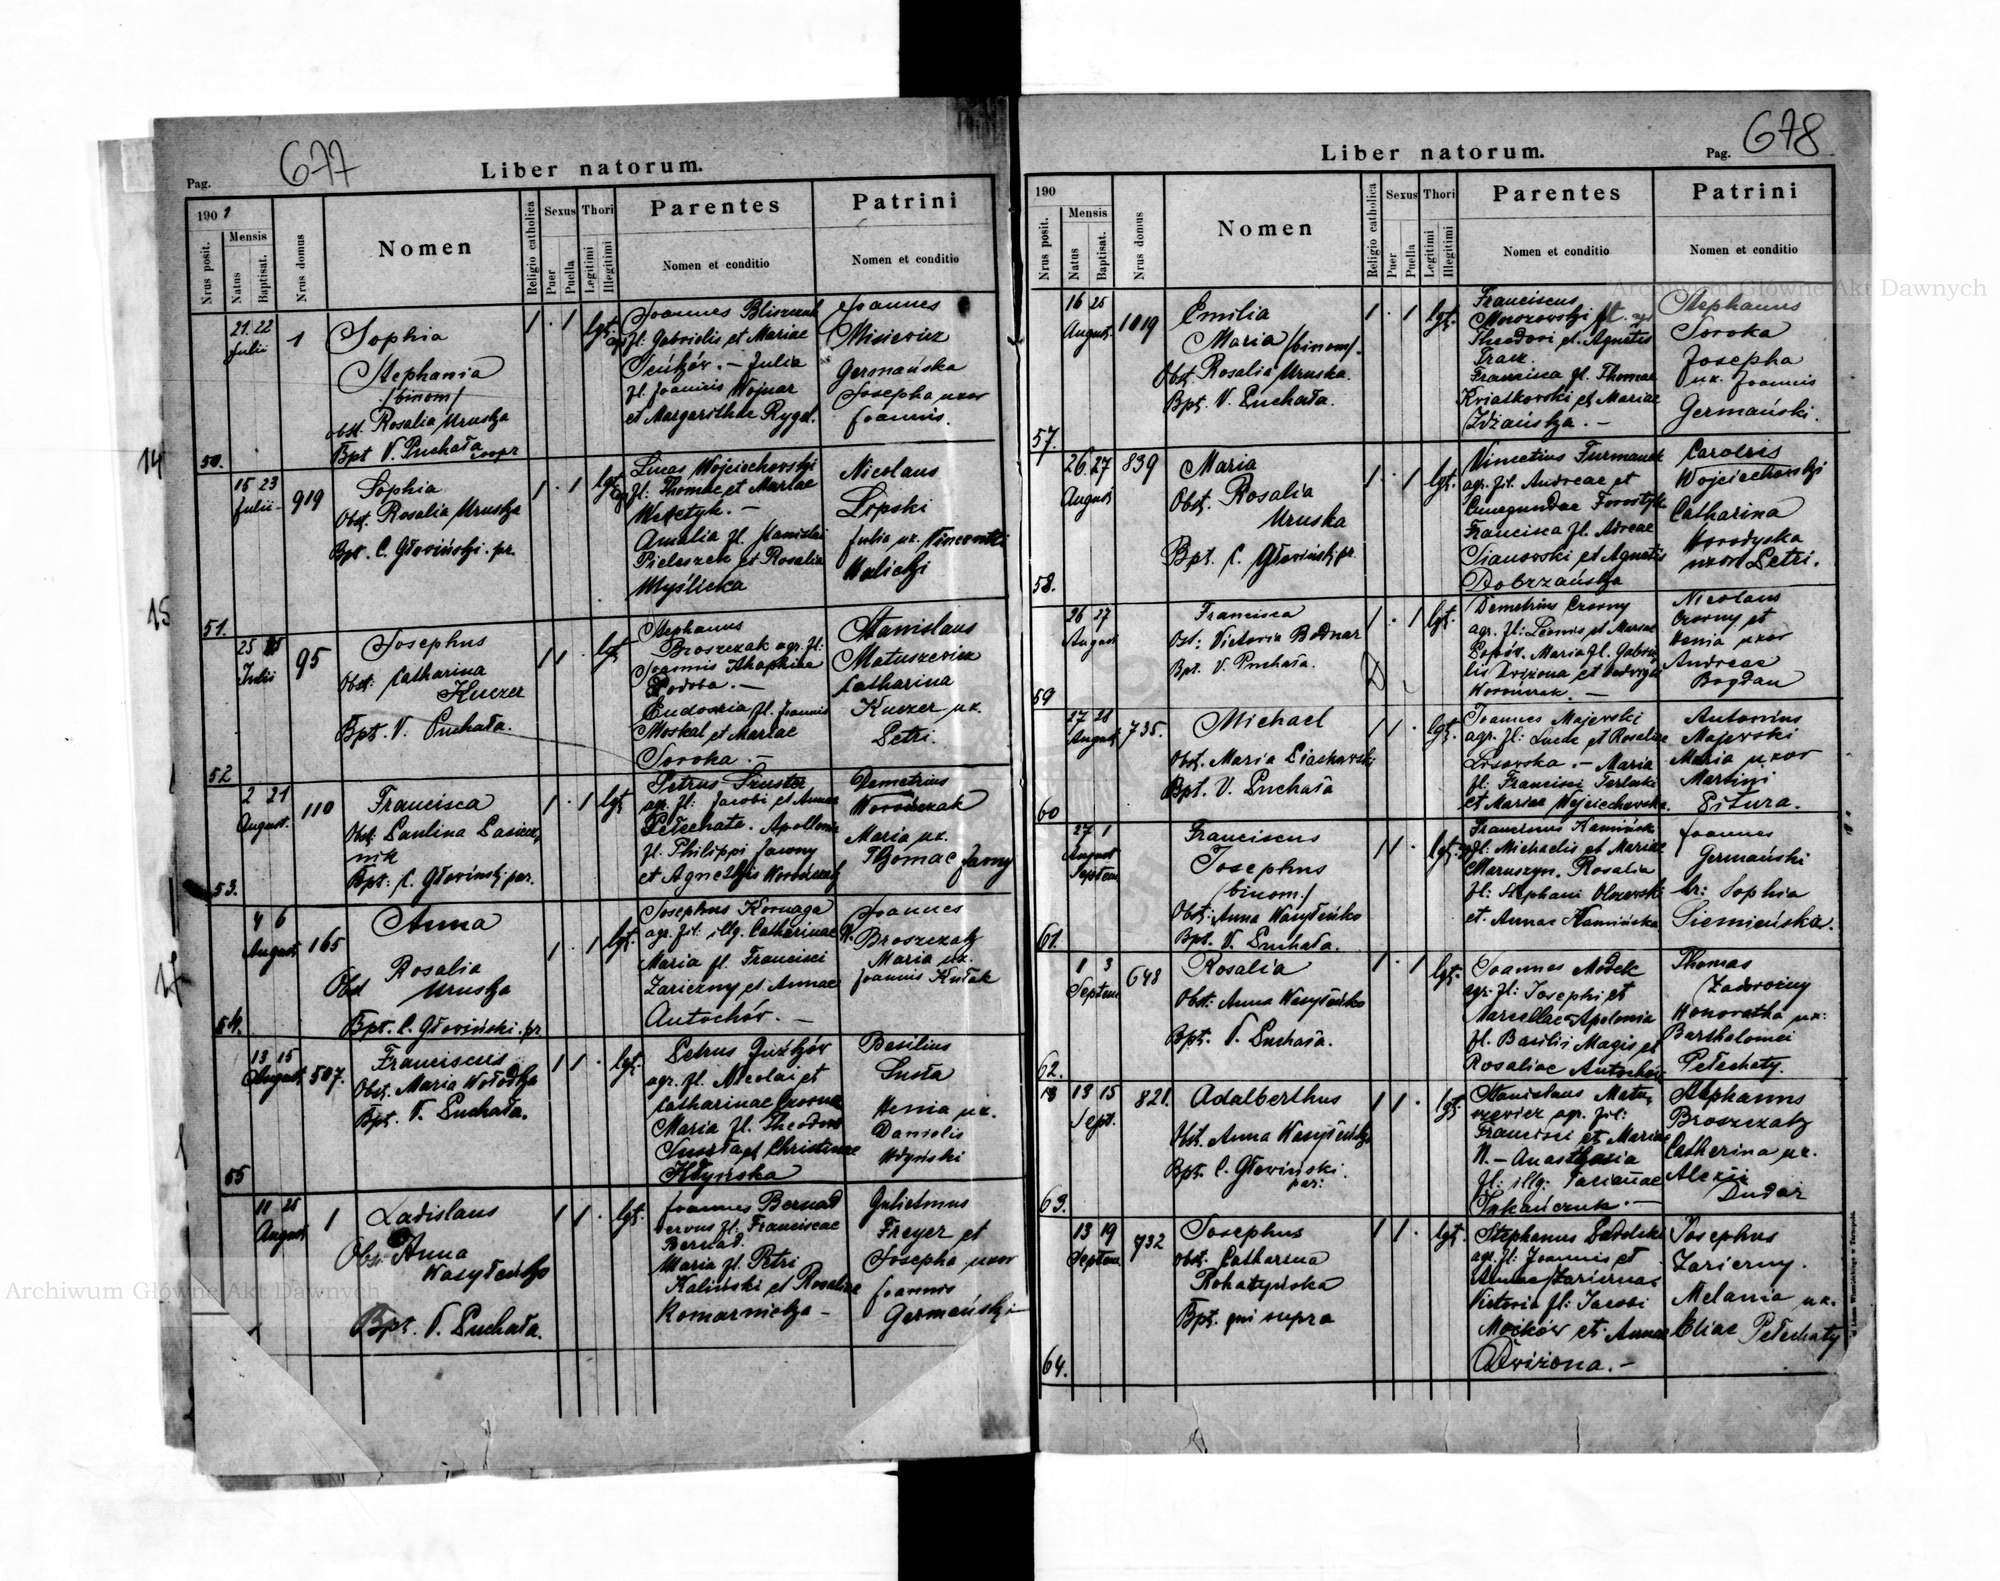 677
Liber natorum.
Pag.
1901
Nrus posit.
Mensis
Natus
Baptisat.
Nrus domus
Nomen
Religio catholica
Sexus
Puer
Puella
Thori
Legitimi
Illegitimi
Parentes
Nomen et conditio
Patrini
Nomen et conditio
50.
21. 22
Julii
1
Sophia
Stephania
/binom/
obst. Rosalia Uruska
Bpt V. Puchała coopr
1 . 1 lgt.
Joannes
fl. Gabrielis et Mariae
Julia
fl. Joannis Wojnar
et Margarethae Rygel.
Joannes
Misiewicz
Germańska
Josepha uxor
Joannis.
51.
15 23
Julii
919
Sophia
Obst. Rosalia Uruska
Bpt. C. Głowiński. pr.
1 . 1 lgt.
Lucas Wojciechowski
fl: Thomae et Mariae
Amelia fl. Stanislai
Pieluszek et Rosalia
Myślicka
Nicolaus
Łopski
Julia ux. Vincentii
Walicki
52
25
Julii
95
Josephus
Obst: Catharina
Kuczer
Bpt. V. Puchała.
1 1 . lgt
Stephanus
Broszczak agr. fl:
Joannis
Eudoxia fl. Joannis
Moskal et Mariae
Soroka. —
Stanislaus
Matuszewicz
Catharina
Kuczer ux.
Petri.
53.
2 21
August.
110
Francisca
Obst: Paulina Pasiecz,
nik
Bpt: C. Głowiński par.
1 . 1 lgt
Petrus Szuster
agr. fl: Jacobi et Annae
Pełechata. Apollonia
fl. Philippi Jawny
et Agnetis
Demetrius
Worończak
Maria ux.
Thomae Jawny
54.
4 6
August
165
Anna
Obst Rosalia
Uruska
Bpt. C. Głowiński. pr
1 . 1 lgt.
Josephus Kornaga
agr. fil. illg. Catharinae
Maria fl. Francisci
Zarierny et Annae
Antochów. —
Joannes
Broszczak
Maria ux.
Joannis Kułak
55
13 15
August
507.
Franciscus
Obst. Maria Wołodka
Bpt. V. Puchała.
1 1 . lgt.
Petrus
agr. fl. Nicolai et
Catharinae Czorna
Maria fl. Theodori
et Christinae
Kłyńska
Basilius
Susła
Xenia ux.
Danielis
11 25
August
1
Ladislaus
Obst. Anna
Wasyłeńko
Bpt. V. Puchała.
1 1 . lgt.
Joannes Bernad
servus fl: Franciscae
Bernad.
Maria fl. Petri
Kaliński et Rosaliae
Komarnicka —
Gulielmus
Freyer et
Josepha uxor
Joannis
Germański
14
15
Liber natorum.
Pag. 678
190
Nrus posit.
Mensis
Natus
Baptisat.
Nrus domus
Nomen
Religio catholica
Sexus
Puer
Puella
Thori
Legitimi
Illegitimi
Parentes
Nomen et conditio
Patrini
Nomen et conditio
57.
16 25
August.
1019
Emilia
Maria /binom/.
Obst. Rosalia Uruska.
Bpt. V. Puchała.
1 . 1 lgt.
Franciscus
Morozowski
Theodori et Agnetis
Francisca fl. Thomae
Kwiatkowski et Mariae
Stephanus
Soroka
Josepha
ux. Joannis
Germański.
58.
26. 27
August
839
Maria
Obst. Rosalia
Uruska
Bpt. C. Głowiński pr.
1 . 1 lgt.
Vincetius Furmanek
agr. fil. Andreae et
Cunegundae
Francisca fl. Adreae
Sianowski et Agnetis
Dobrzańska
Carolus
Wojciechowski
Catharina
Horodyska
uxor Petri.
59
26 27
August
Francisca
Ost: Victoria Bodnar
Bpt. V. Puchała.
1 . 1 lgt.
Demetrius Czorny
agr. fl: Leonis et Mariae
Popów. Maria fl. Gabrie,
lis Dwiżona et Hedvigis
Nicolaus
Czorny et
Xenia uxor
Andreae
Bogdan
60
27 28
August
735.
Michael
Obst. Maria Piaskowski
Bpt. V. Puchała
1 1 . lgt.
Joannes Majewski
agr. fl: Lucae et Rosaliae
Lisowska. — Maria
fl: Francisci
et Mariae Wojciechowska.
Antonius
Majewski
Maria uxor
Martini
Pitura.
61.
27 1
August
Septem
Franciscus
Josephus
/binom/
Obst: Anna Wasyłeńko
Bpt. V. Puchała.
1 1 . lgt.
Franciscus Kamińsk
fl: Michaelis et Mariae
Maruszyn. Rosalia
fl: Stephani Olszewski
et. Annae Kamińska
Joannes
Germański
Sophia
Siemieńska.
62.
1 3
Septem
648
Rosalia
Obst: Anna Wasyłeńko
Bpt. V. Puchała.
1 . 1 lgt.
Joannes Mosek
agr. fl: Josephi et
Marcellae - Apolonia
fl. Basilii Magis et
Rosaliae Antochów
Thomas
Zadorożny
Honoratha ux:
Bartholomei
Pełechaty.
63.
13 15
Sept.
821.
Adalberthus
Obst. Anna Wasyłeńko
Bpt. C. Głowiński
par:
1 1 . lgt
Stanislaus Matu,
szewicz agr. fil:
Francisci et Mariae
N. — Anasthasia
fl: illg: Parianae
Stephanus
Broszczak
Catherina ux.
Alexii
Dudar
64.
13 19
Septem
732
Josephus
obst. Catharina
Rohatyńska
Bpt. qui supra
1 1 . lgt.
Stephanus Sadolski
agr. fl: Joannis et
Annae Zariernae
Victoria fl: Jacobi
Moćków et Annae
Dwiżona. —
Josephus
Zarierny.
Melania ux.
Eliae Pełechaty
Archiwum Główne Akt Dawnych
Archiwum Główne Akt Dawnych